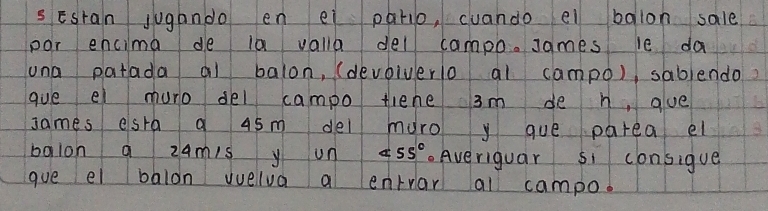 5 Estan jugando en el patio, cuando el balon sale
por encima de la valla del campo. James le da
una patada al balon, (devolverlo al campo), sabiendo
que el muro del campo tiene 3m de h, que
James esta a 45m del muro y que patea el
balon a 24m/s y un ∢55°. Averiguar si consigue
que el balon vuelva a entrar al campo.